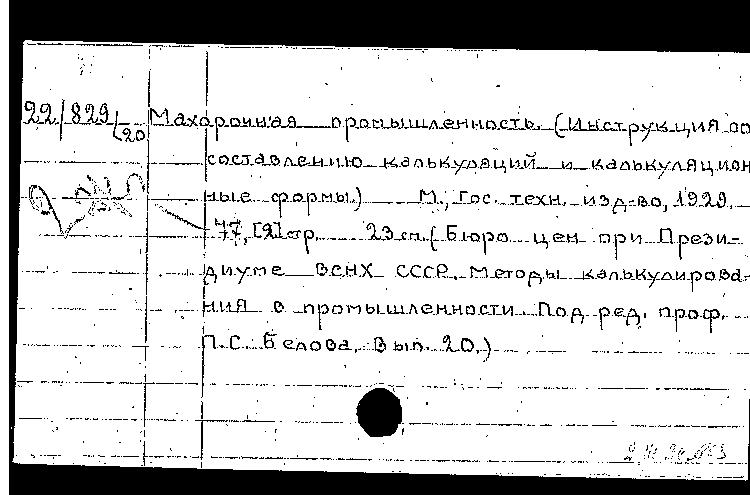 22/829/20 Макаронная промышленность. (Инструкция по
составлению калькуляций и калькуляцион
ные формы.) М., Гос. техн. изд-во, 1929.
77, [2] стр. 23 см. (Бюро цен при Прези-
диуме ВСНХ СССР. Методы калькулирова-
ния в промышленности. Под ред. проф.
П.С. Белова. Вып. 20.)